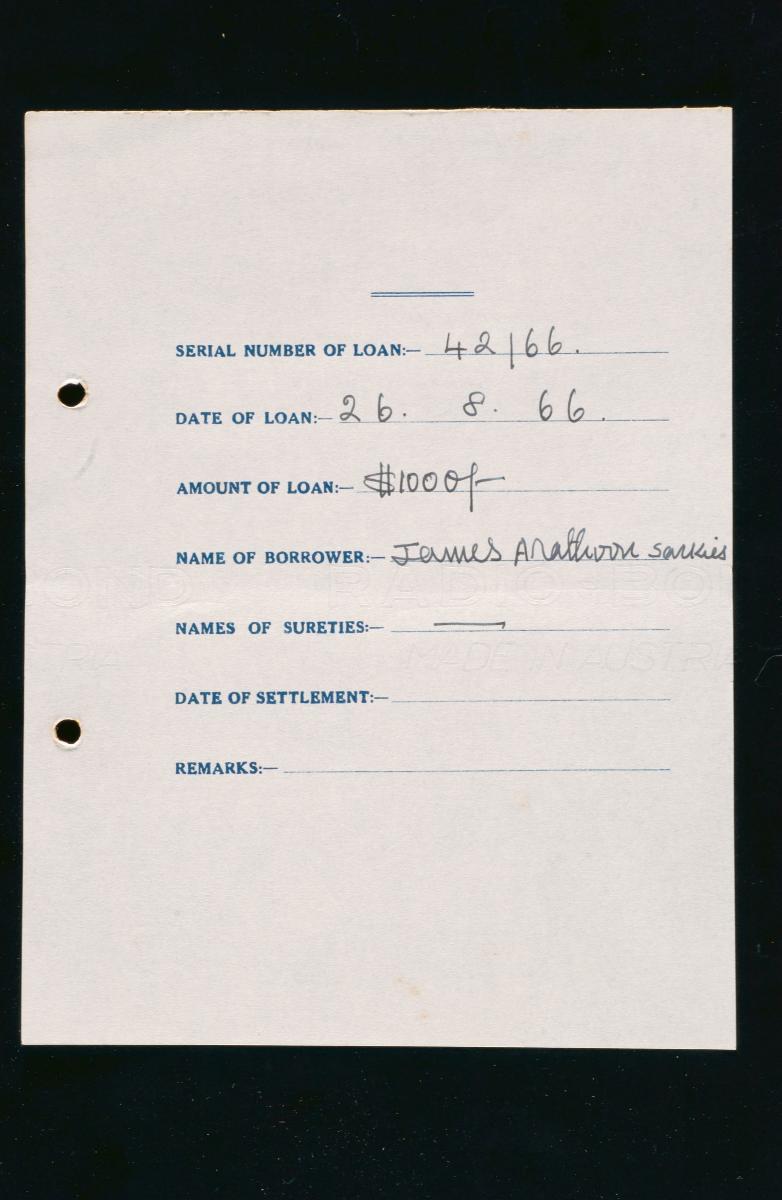 SERIAL NUMBER OF LOAN:— 42/66.
DATE OF LOAN:— 26. 8. 66.
AMOUNT OF LOAN:— $1000/-
NAME OF BORROWER:— James Arathoon Sarkies
NAMES OF SURETIES:— —
DATE OF SETTLEMENT:—
REMARKS:—